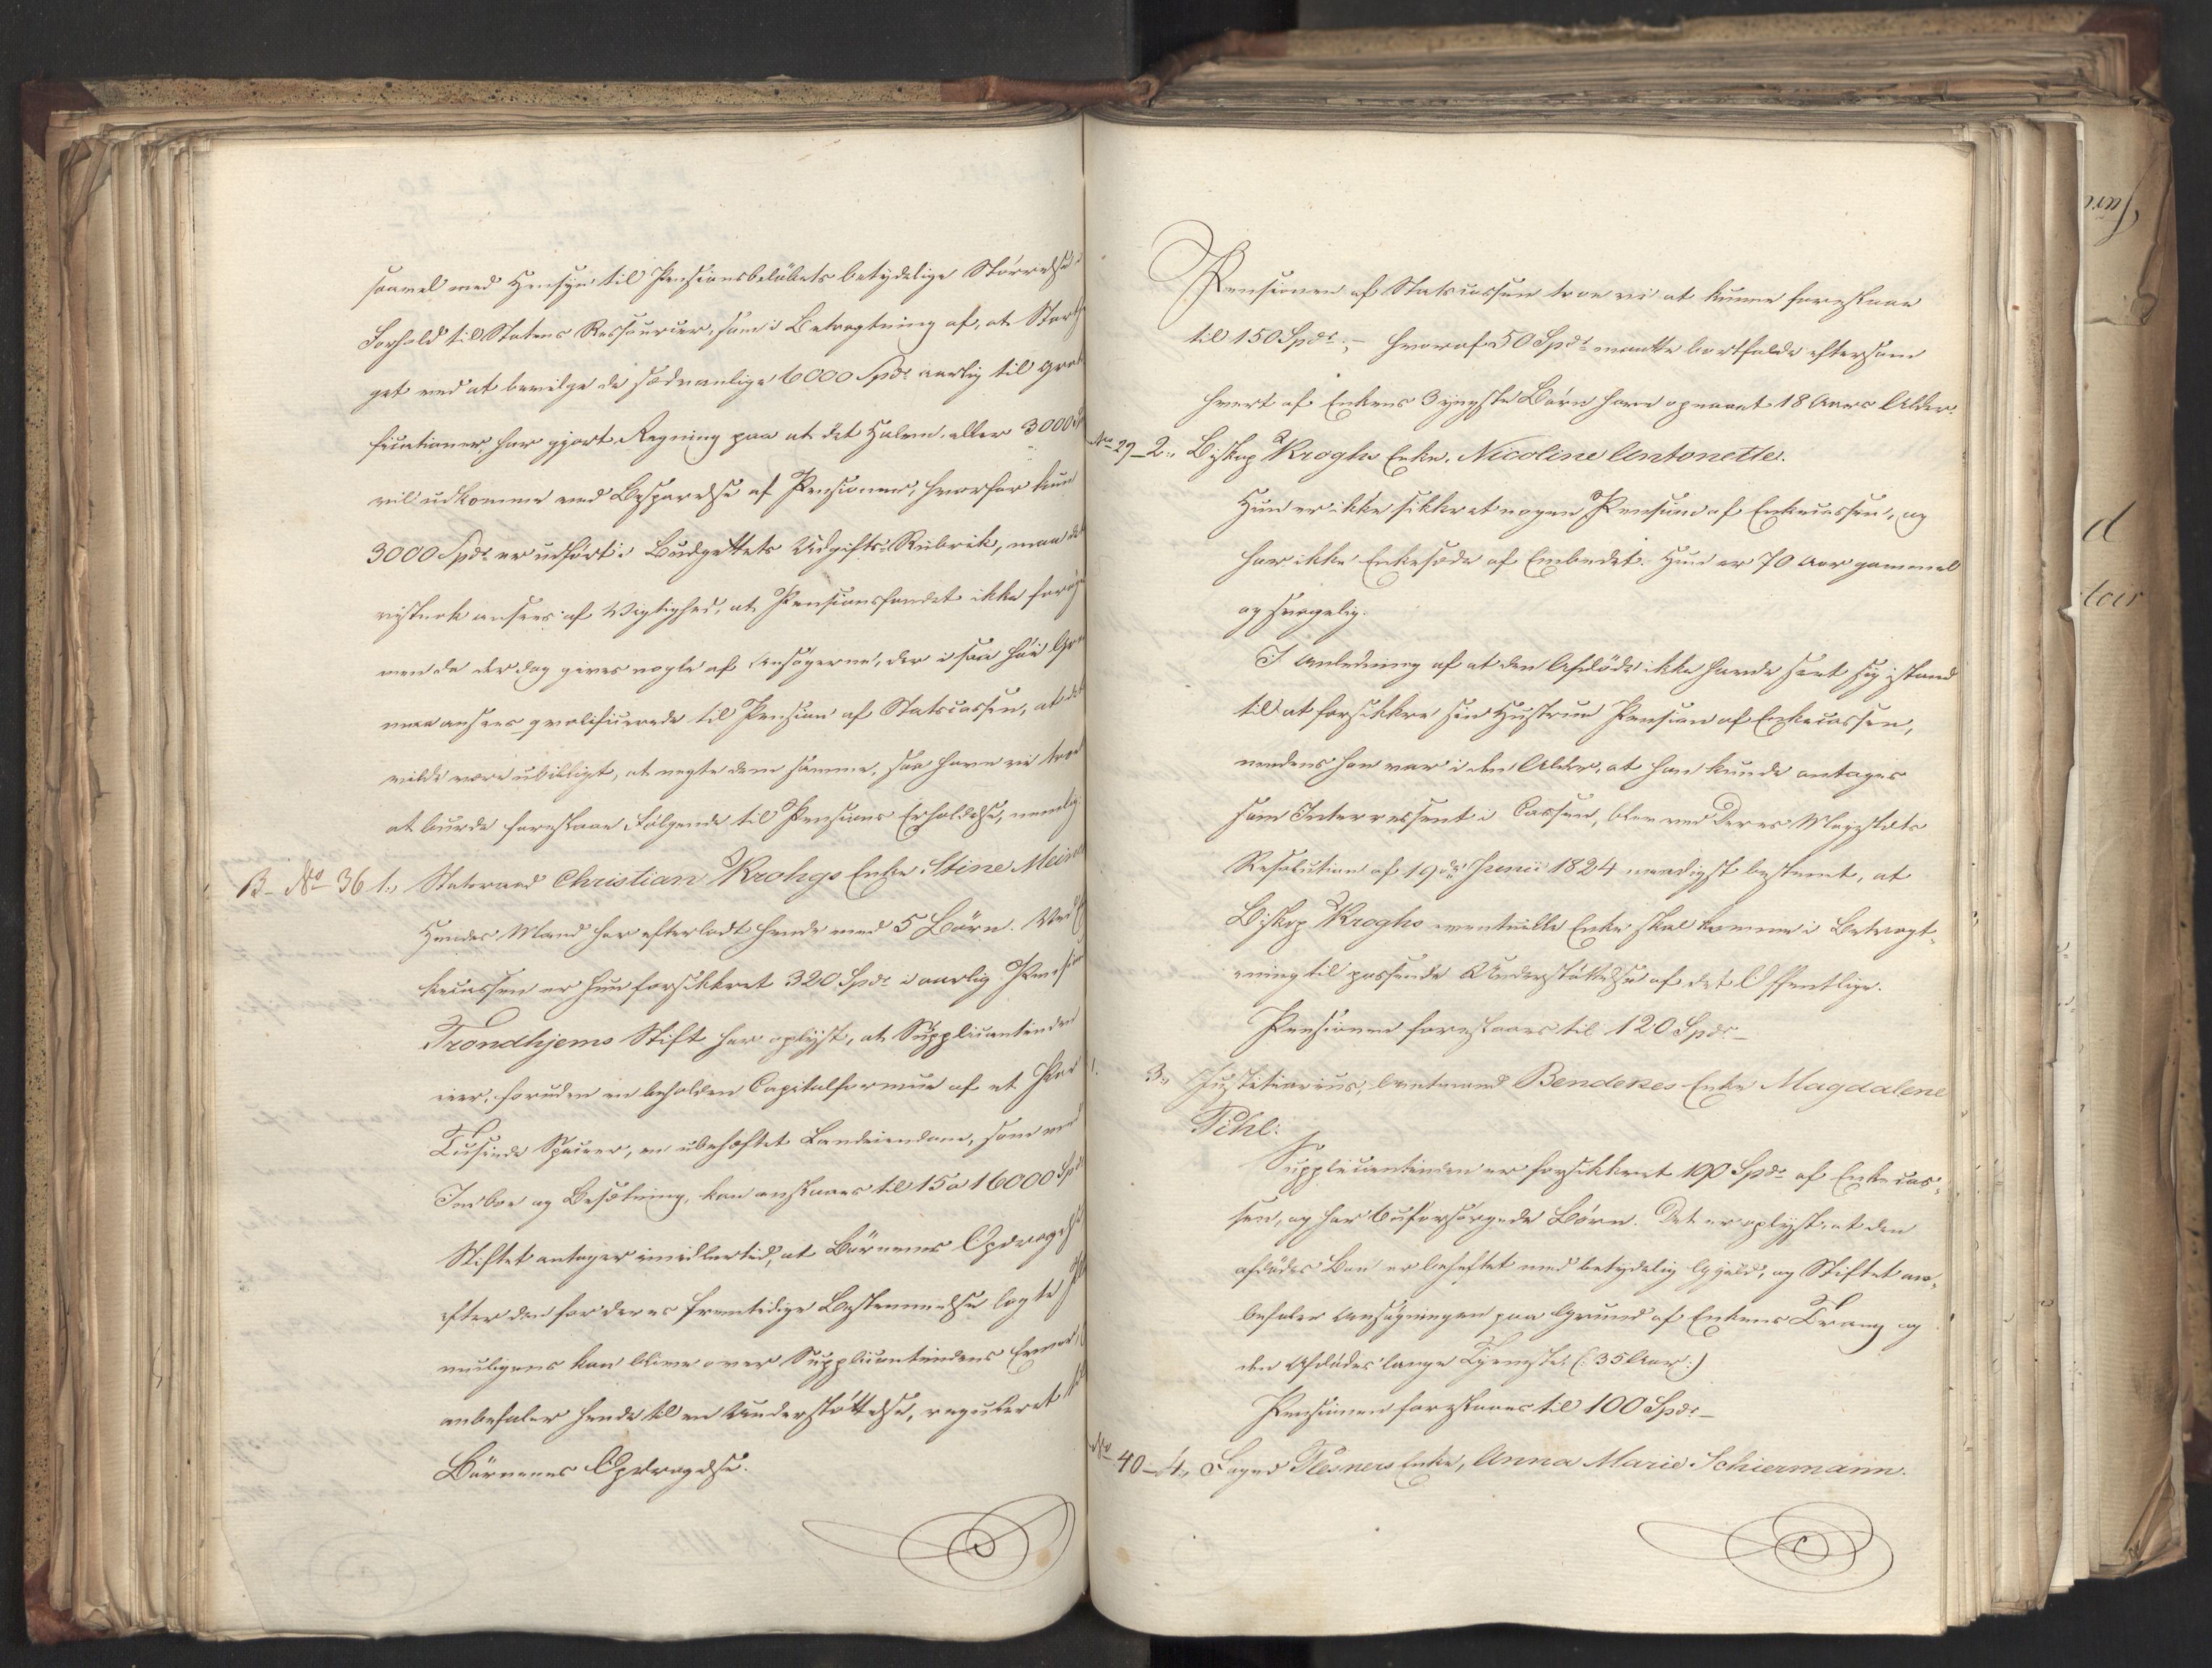 saavel med Hensyn til Pensionsbeløbets betydelige Størrelse i
Forhold til Statens Ressourcer, som i Betragtning af, at Storth
get ved at bevilge de sædvanlige 6000 Spdr aarlig til Grati
ficationer, har gjort Regning paa at det Halve, eller 3000 Sp
vil udkomme ved Besparelse af Pensioner, hvorfor kun
3000 Spdr er udført i Budgettets Udgifts-Rubrik, maa det
vistnok ansees af Vigtighed, at Pensionsfondet ikke forøg
men da der dog gives nogle af Ansøgerne, der i saa høi Gra
maa ansees qvalificerede til Pension af Statscassen, at det
vilde være ubilligt, at negte dem samme, saa have vi troet
at burde foreslaae Følgende til Pensions Erholdelse, nemlig:
B. No 36 1., Statsraad Christian Krohgs Enke Stine Mein
Hendes Mand har efterladt hende med 5 Børn. Ved E
kecassen er hun forsikkret 320 Spdr i aarlig Pension
Trondhjems Stift har oplyst, at Supplicantinden
eier, foruden en beholden Capitalformue af et Par
Tusinde Specier, en ubehæftet Landeiendom, som med
Indboe og Besætning, kan anslaaes til 15 à 16000 Spdr
Stiftet antager imidlertid, at Børnenes Opdragelse
efter den for deres fremtidige Bestemmelse lagte Pla
muligens kan blive over Supplicantindens Evner,
anbefaler hende til en Understøttelse, reguleret
Børnenes Opdragelse.
Pensionen af Statscassen troe vi at kunne foreslaae
til 150 Spdr; – hvoraf 50 Spdr maatte bortfalde eftersom
hvert af Enkens 3 yngste Børn have opnaaet 18 Aars Alder.
No 29 2., Biskop Kroghs Enke, Nicoline Antonette.
Hun er ikke sikkret nogen Pension af Enkecassen, og
har ikke Enkesæde af Embedet. Hun er 70 Aar gammel
og svagelig.
I Anledning af at den Afdøde ikke havde seet sig istand
til at forsikkre sin Hustrue Pension af Enkecassen,
medens han var i den Alder, at han kunde antages
som Interressent i Cassen, blev ved Deres Majestæts
Resolution af 19de Junii 1824 naadigst bestemt, at
Biskop Kroghs eventuelle Enke skal komme i Betragt-
ning til passende Understøttelse af det Offentlige.
Pensionen foreslaaes til 120 Spdr –
3., Justitiarius, Amtmand Bendekes Enke Magdalene
Pihl:
Supplicantinden er forsikkret 190 Spdr af Enkecas-
sen, og har 6 uforsørgede Børn. Det er oplyst, at den
afdødes Boe er beheftet med betydelig Gjæld, og Stiftet an-
befaler Ansøgningen paa Grund af Enkens Trang og
den Afdødes lange Tjeneste (: 35 Aar :)
Pensionen foreslaaes til 100 Spdr –
No 40 4., Foged Plesners Enke, Anna Marie Schiermann.